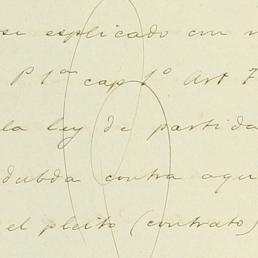 esplicado con
P 1ª cap 1º Art 7
la ley de partida
dubda contra aqu
el pleito (contrato)